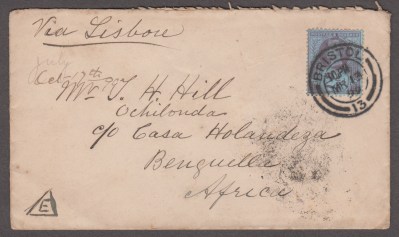 Via Lisbon
July
Oct 17th
Mr. T. H. Hill
Ochilonda
c/o Casa Holandeza
Benguella
Africa
BRISTOL
13
E